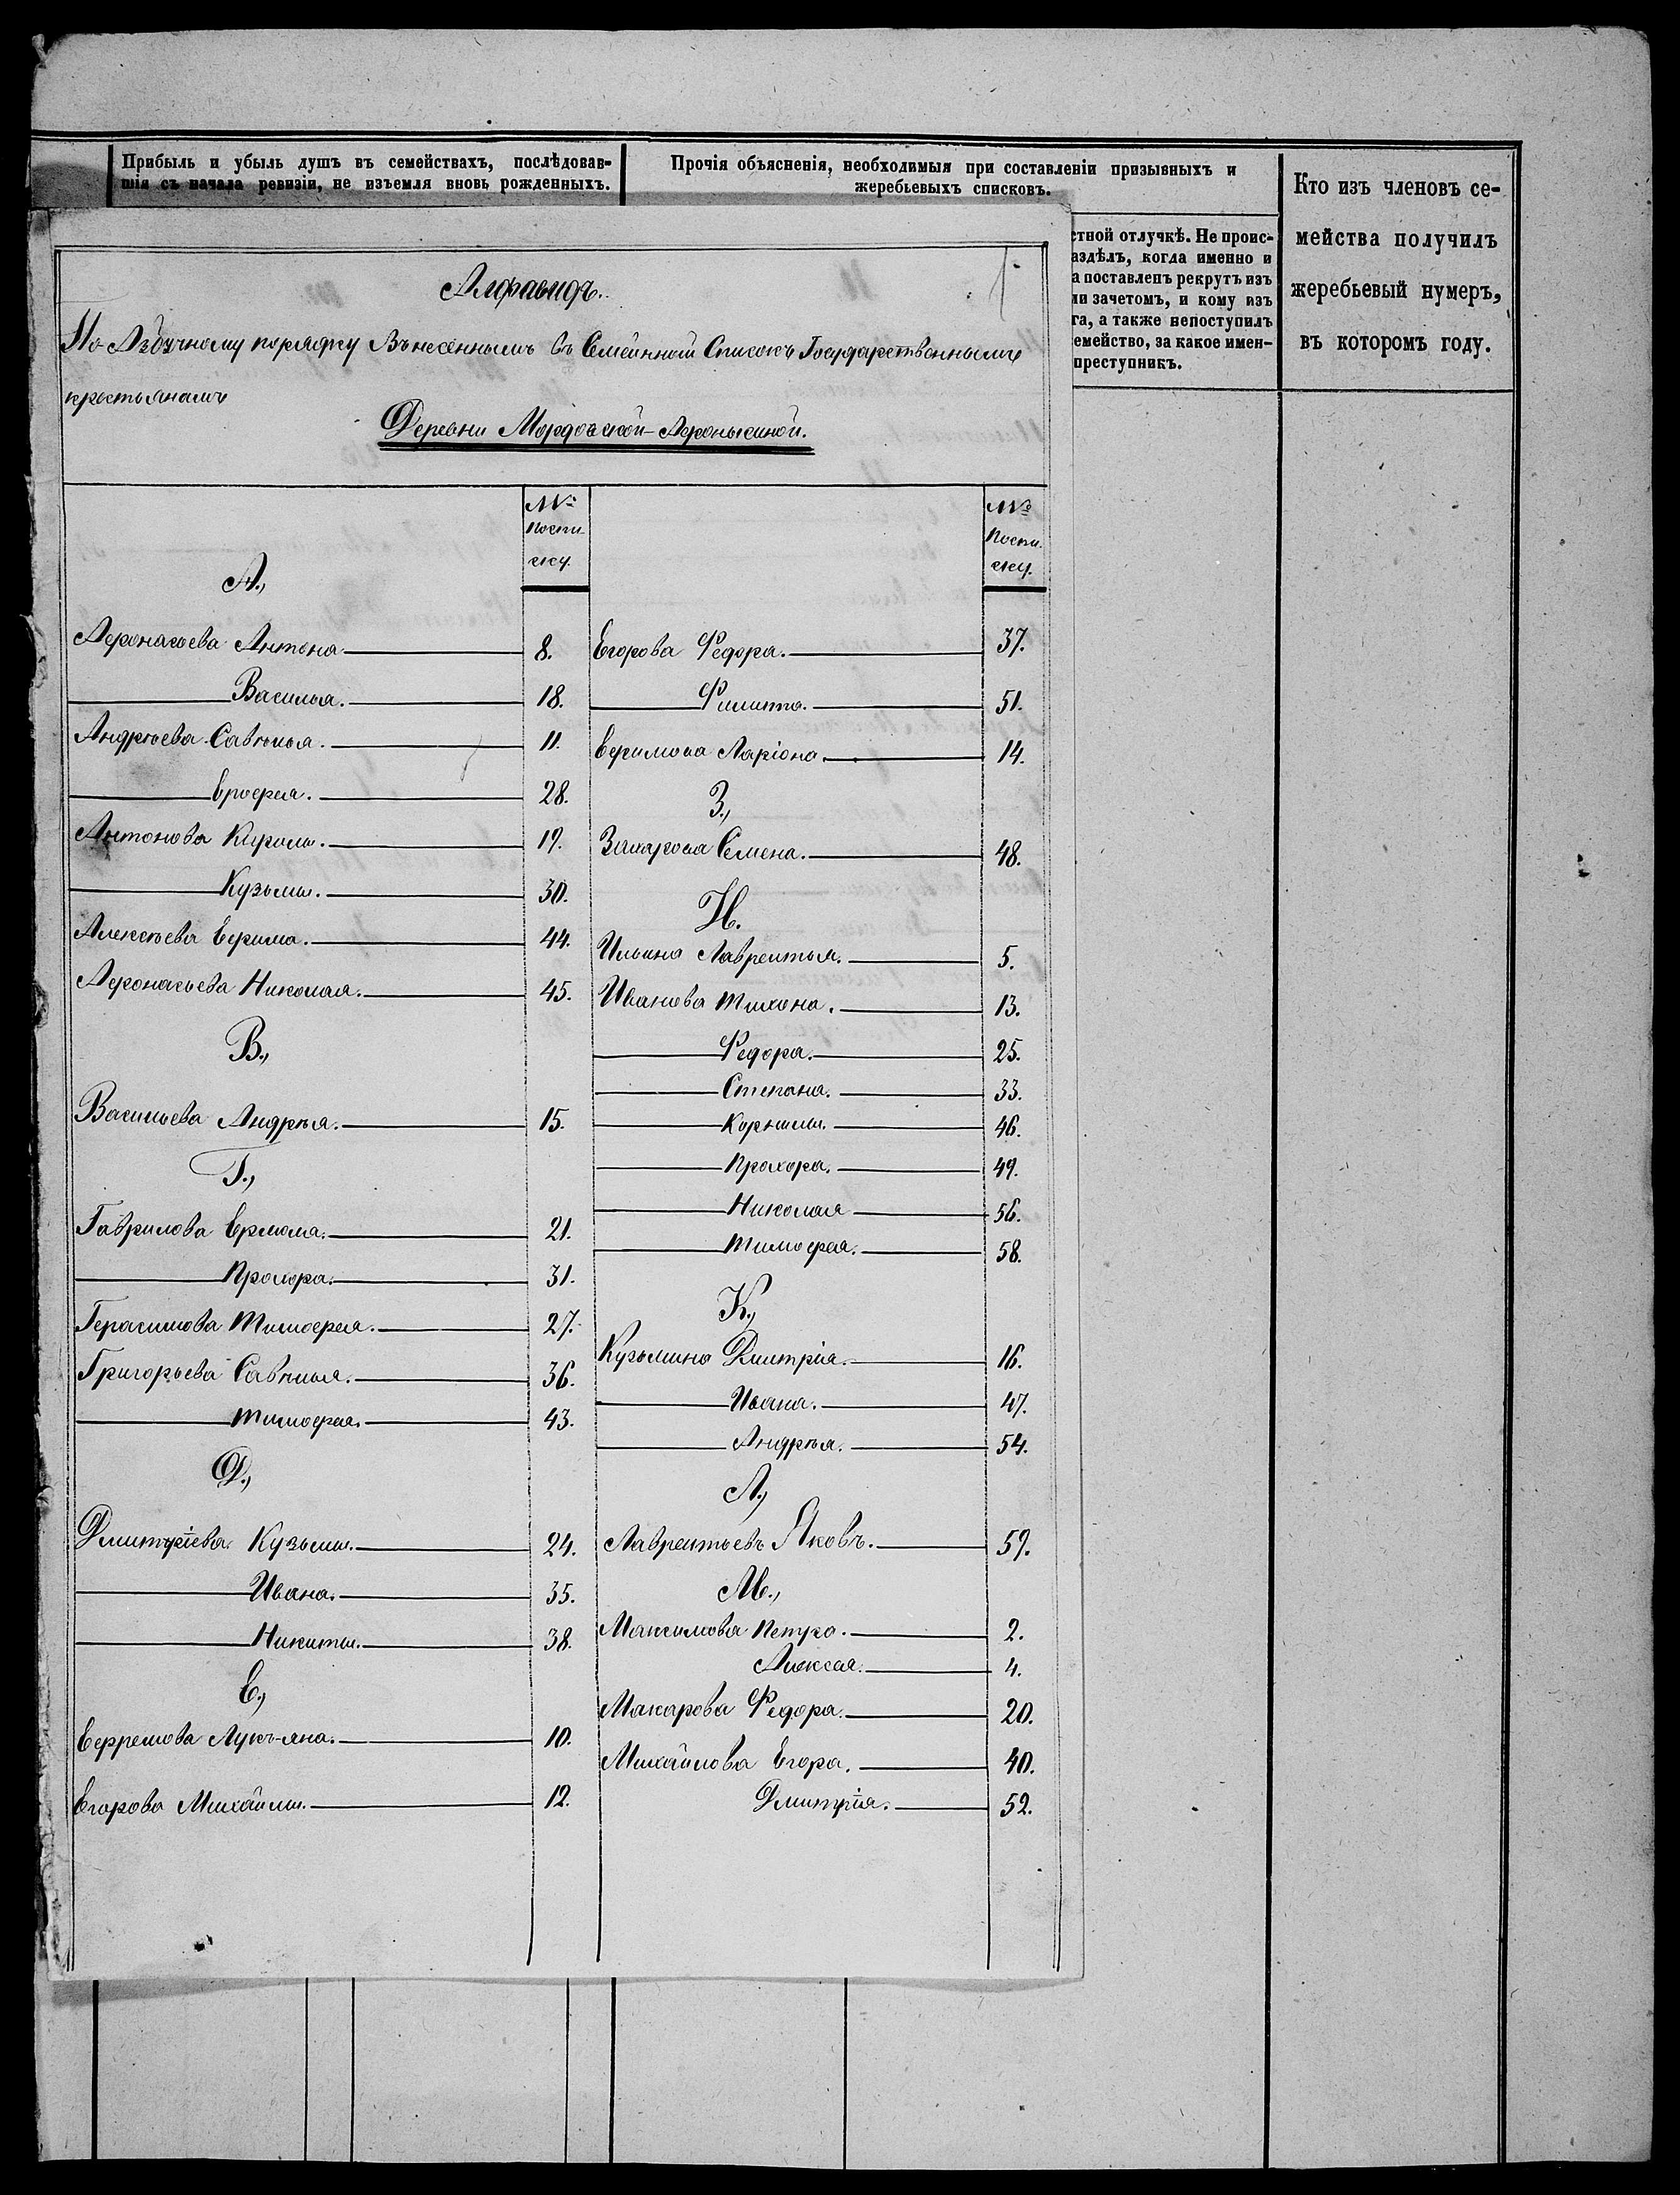 Прибыль и убыль душъ въ семействахъ, послѣдовав-
шія съ начала ревизіи, не изъемля вновь рожденныхъ.
Прочія объясненія, необходимыя при составленіи призывныхъ и
жеребьевыхъ списковъ.
Кто изъ членовъ се-
мейства получилъ
жеребьевый нумеръ,
въ которомъ году.
стной отлучкѣ. Не проис-
аздѣлъ, когда именно и
а поставленъ рекрутъ изъ
ли зачетомъ, и кому изъ
га, а также непоступилъ
емейство, за какое имен-
преступникъ.
Алфавидъ.
По Азбучному порядку Вънесеннымъ въ Семейной Списокъ Государственнымъ
крестьянамъ
Деревни Мордовской-Афонькиной.
№ поспи-
ску.
А.,
Афонасьева Антона 8.
Василья. 18.
Андреева Савелья. 11.
Ерофея. 28.
Антонова Кирилы. 19.
Кузьмы. 30.
Алексѣева Ефима. 44.
Афонасьева Николая. 45.
В.,
Васильева Андрея. 15.
Г.,
Гаврилова Ермола. 21.
Прохора. 31.
Герасимова Тимофея. 27.
Григорьева Савелья. 36.
Тимофея. 43.
Д.,
Дмитріева Кузьмы. 24.
Ивана. 35.
Никиты. 38.
Е.,
Ефремова Лукъ-яна. 10.
Егорова Михайлы. 12.
№ поспи.
ску.
Егорова Федора. 37.
Филипа. 51.
Ефимова Ларіона. 14.
З.,
Захарова Семена. 48.
И.
Ильина Лаврентья. 5.
Иванова Тихона. 13.
Федора. 25.
Степана. 33.
Корнилы. 46.
Прохора. 49.
Николая 56.
Тимофея. 58.
К.,
Кузьмина Дмитрія. 16.
Ивана. 47.
Андрея. 54.
Л.,
Лаврентьевъ Яковъ. 59.
М.,
Максимова Петра. 2.
Алексая. 4.
Макарова Федора. 20.
Михайлова Егора. 40.
Дмитрія. 52.